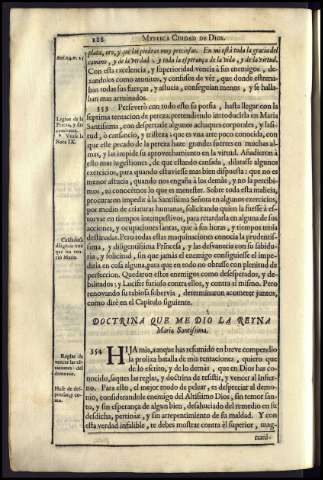 228 MYSTICA CIUDAD DE DIOS.
plata, oro, y que las piedras muy preciosas. En mi està toda la gracia del
camino, y de la verdad; y toda la esperança de la vida, y de la virtud.
Con esta excelencia, y superioridad vencia à sus enemigos, de-
xandolos como atonitos, y confusos de vèr, que donde estrena-
ban todas sus fuerças, y astucia, conseguian menos, y se halla-
ban mas arruinados.
353 Perseverò con todo esso su porfia, hasta llegar con la
septima tentacion de pereza; pretendiendo introducirla en Maria
Santissima, con despertarle algunos achaques corporales, y lasi-
tud, ò cansancio, y tristeza; que es vna arte poco conocida, con
que este pecado de la pereza haze grandes suertes en muchas al-
mas, y las impide su aprovechamiento en la virtud. Añadieron à
ello mas sugestiones, de que estando cansada, dilatasse algunos
exercicios, para quando estuviesse mas bien dispuesta: que no es
menor astucia, quando nos engaña à los demàs, y no la percibi-
mos, ni conocèmos lo que es menester. Sobre toda esta malicia,
procuraron impedir à la Santissima Señora en algunos exercicios,
por medio de criaturas humanas, solicitando quien la fuesse à es-
torvar en tiempos intempestivos, para retardarla en alguna de sus
acciones, y ocupaciones santas, que à sus horas, y tiempos tenia
destinadas. Pero todas estas maquinaciones conocia la prudentis-
sima, y diligentissima Princesa, y las desvanecia con su sabidu-
ria, y solicitud, sin que jamàs el enemigo consiguiesse el impe-
dirla en cosa alguna, para que en todo no obrasse con plenitud de
perfeccion. Quedaron estos enemigos como desesperados, y de-
bilitados; y Lucifer furioso contra ellos, y contra sì mismo. Pero
renovando su rabiosa sobervia, determinaron acometer juntos,
como dirè en el Capitulo siguiente.
DOCTRINA QUE ME DIÒ LA REYNA
Maria Santissima.
354 HIJA mia, aunque has resumido en breve compendio
la prolixa batalla de mis tentaciones, quiero que
de lo escrito, y de lo demàs, que en Dios has co-
nocido, saques las reglas, y doctrina de resistir, y vencer al Infier-
no. Para esto, el mayor modo de pelear, es despreciar al demo-
nio, considerandole enemigo del Altissimo Dios, sin temor san-
to, y sin esperança de algun bien, desahuciado del remedio en su
desdicha, pertinàz, y sin arrepentimiento de su maldad. Y con
esta verdad infalible, te debes mostrar contra èl superior, mag-
nani-
Legion de la
Pereza, y sus
* Vease la
Nota IX.
Reglas de
vencer las ten-
taciones del
demonio.